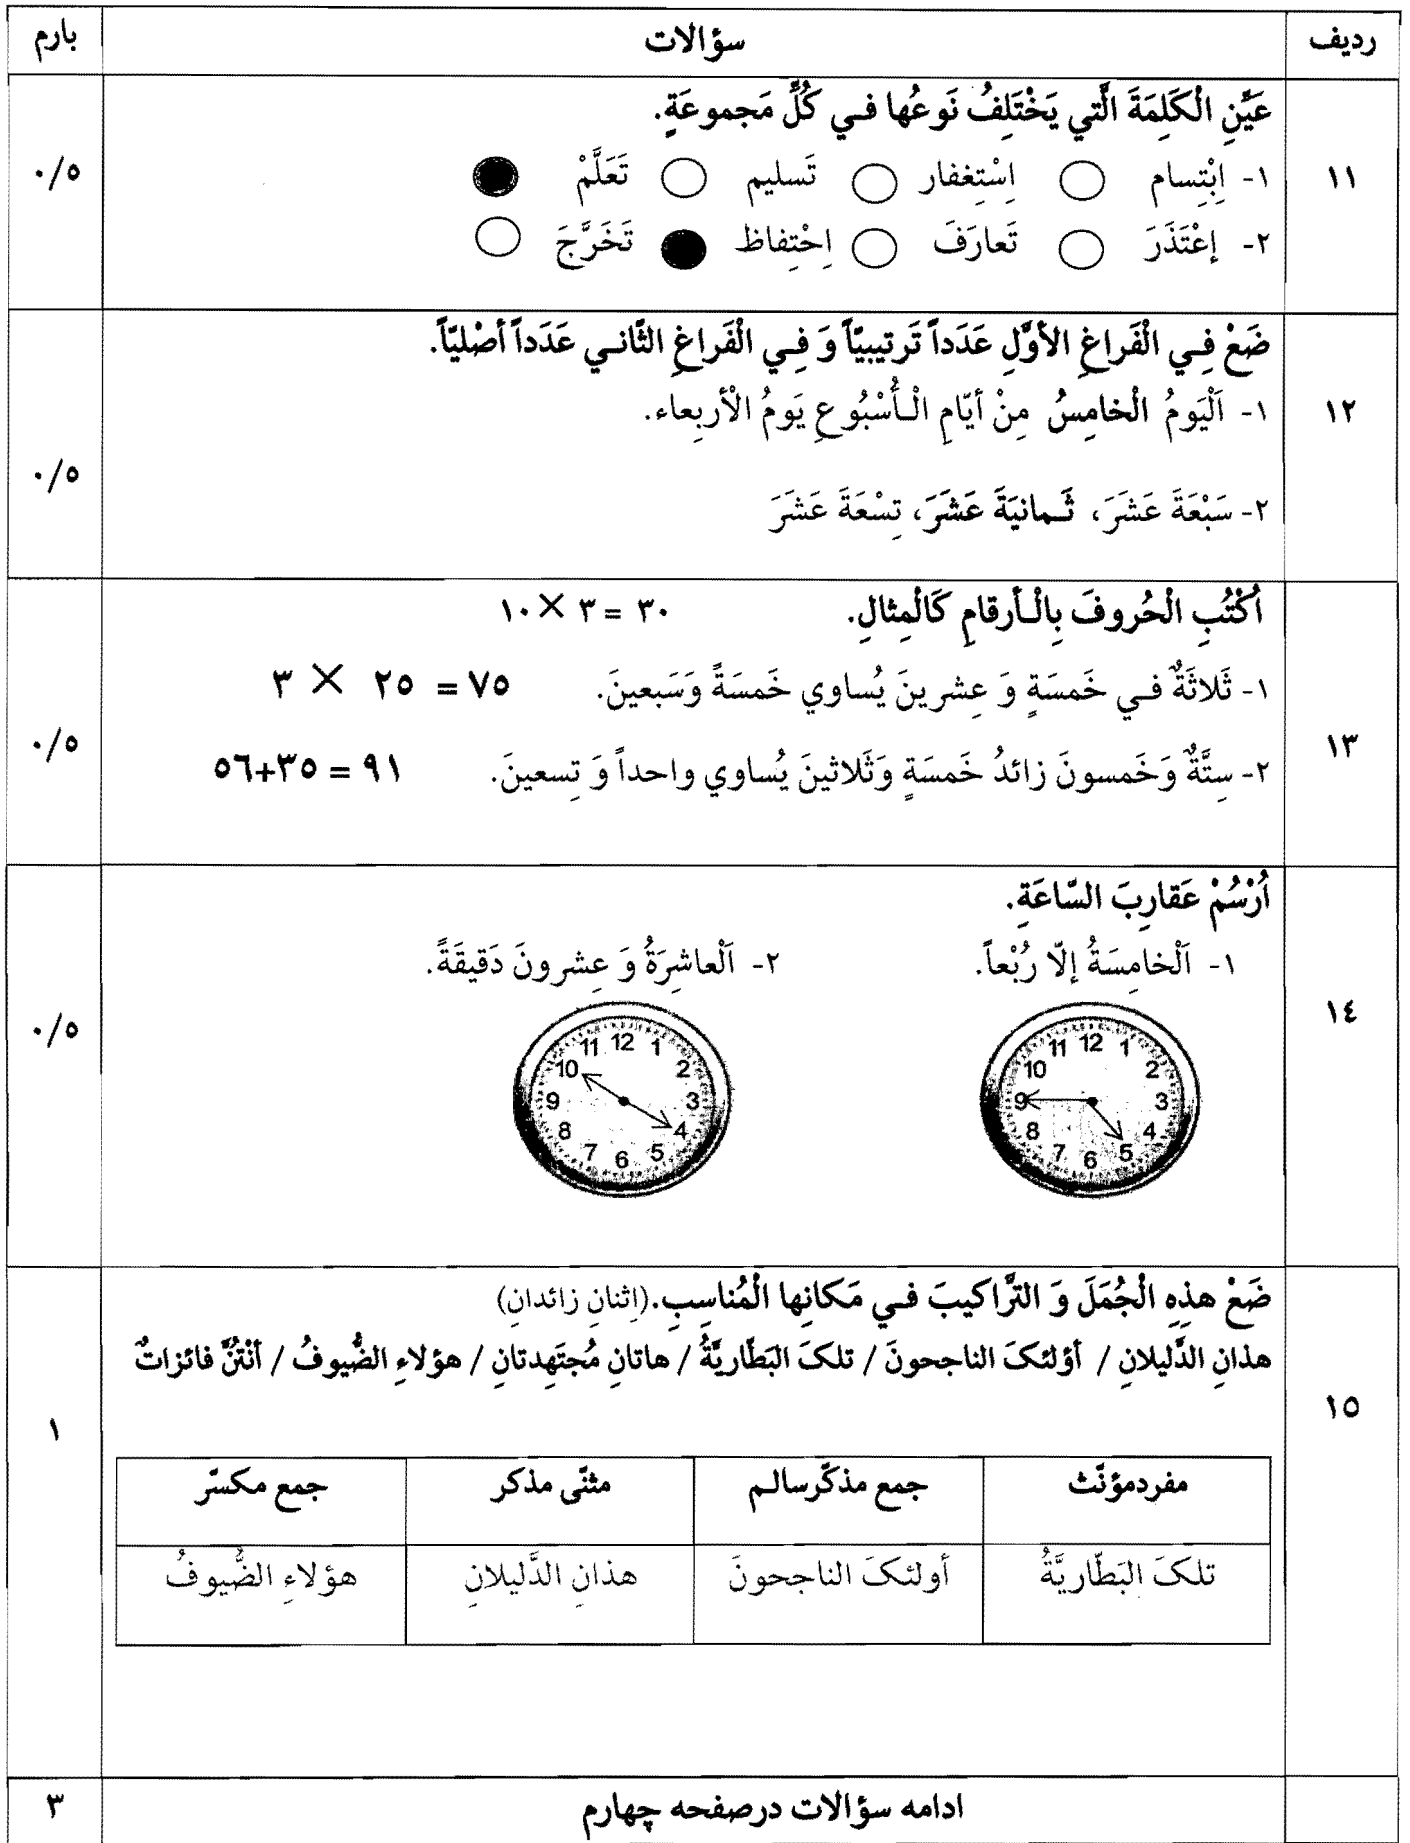 ردیف سؤالات بارم
عَیِّنِ الْکَلِمَةَ الَّتي یَخْتَلِفُ نَوعُها فـي کُلِّ مَجموعَةٍ.
۱- اِبْتِسام اِسْتِغفار تَسلیم تَعَلَّمْ
۱۱ ۰/۵
۲- إعْتَذَرَ تَعارَفَ اِحْتِفاظ تَخَرَّجَ
ضَعْ فِـي الْفَراغِ الأوَّلِ عَدَداً تَرتیبیّاً وَ فِـي الْفَراغِ الثَّانـي عَدَداً أصْلیّاً.
۱- اَلْیَومُ الْخامِسُ مِنْ أیّامِ الْـأُسْبُوعِ یَومُ الْأربِعاء.
۱۲ ۰/۵
۲- سَبْعَةَ عَشَرَ، ثَـمانیَةَ عَشَرَ، تِسْعَةَ عَشَرَ
اُکْتُبِ الْحُروفَ بِالْـأرقامِ کَالْمِثالِ. ۱۰ × ۳ = ۳۰
۱- ثَلاثَةٌ فـي خَمسَةٍ وَ عِشرینَ یُساوي خَمسَةً وَسَبعینَ. ۳ × ۲۵ = ۷۵
۱۳ ۰/۵
۲- سِتَّةٌ وَخَمسونَ زائدُ خَمسَةٍ وَثَلاثینَ یُساوي واحداً وَ تِسعینَ. ۵٦+۳۵ = ۹۱
اُرْسُمْ عَقارِبَ السّاعَةِ.
۱- اَلْخامِسَةُ إلّا رُبْعاً. ۲- اَلْعاشِرَةُ وَ عِشرونَ دَقیقَةً.
۱٤ ۰/۵
12 1 2 3 4 5 6 7 8 9 10 11
12 1 2 3 4 5 6 7 8 9 10 11
ضَعْ هذِهِ الْجُمَلَ وَ التَّراکیبَ فـي مَکانِها الْمُناسِبِ.(اِثنانِ زائدانِ)
هذانِ الدَّلیلانِ / أؤلئکَ الناجحونَ / تلکَ البَطّاریَّةُ / هاتانِ مُجتَهِدتانِ / هؤلاءِ الضُّیوفُ / أنْتُنَّ فائزاتٌ
۱۵ ۱
مفردمؤنّث جمع مذکّرسالـم مثنّی مذکر جمع مکسّر
تلکَ البَطّاریَّةُ أولئکَ الناجحونَ هذانِ الدَّلیلانِ هؤلاءِ الضُّیوفُ
ادامه سؤالات درصفحه چهارم ۳